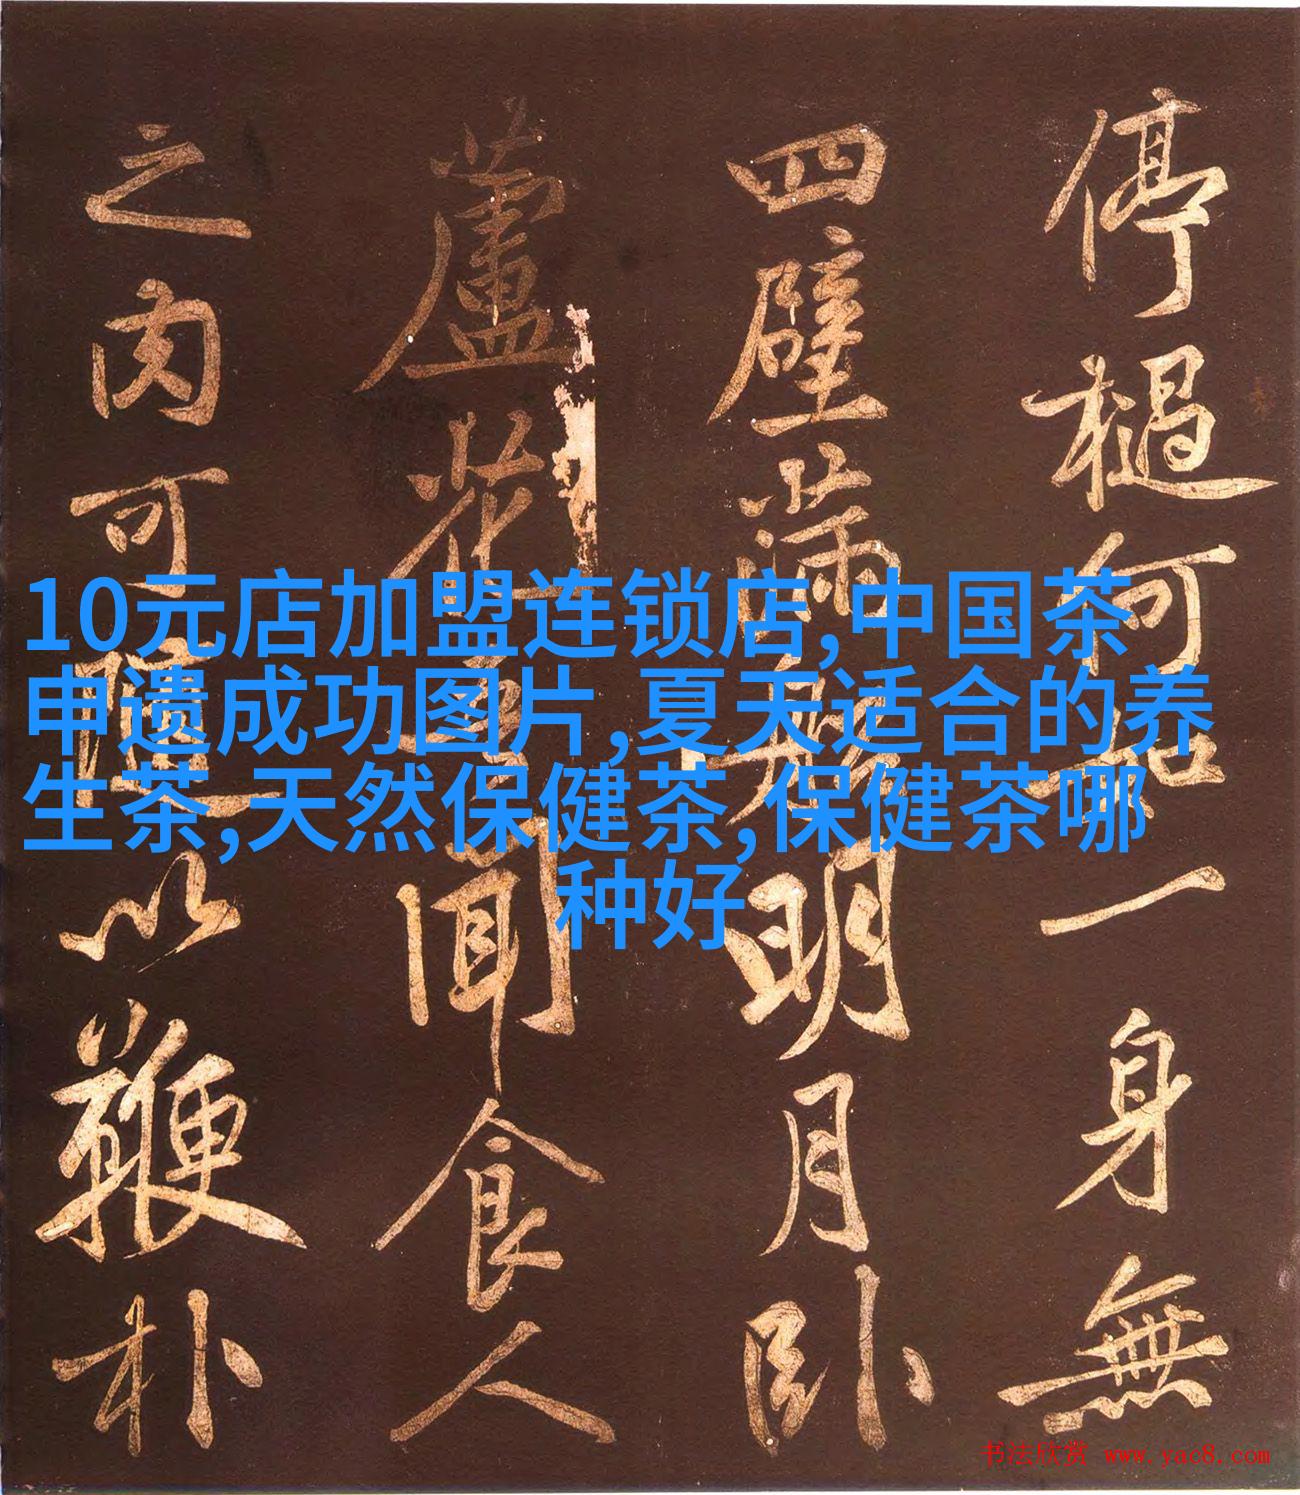 停檛何如一身無
四壁滿 明月臥
蘆花 聞食人
之肉可隨以鞭朴
10元店加盟连锁店,中国茶
申遗成功图片,夏天适合的养
生茶,天然保健茶,保健茶哪
种好
书法欣赏 www.yac8.com